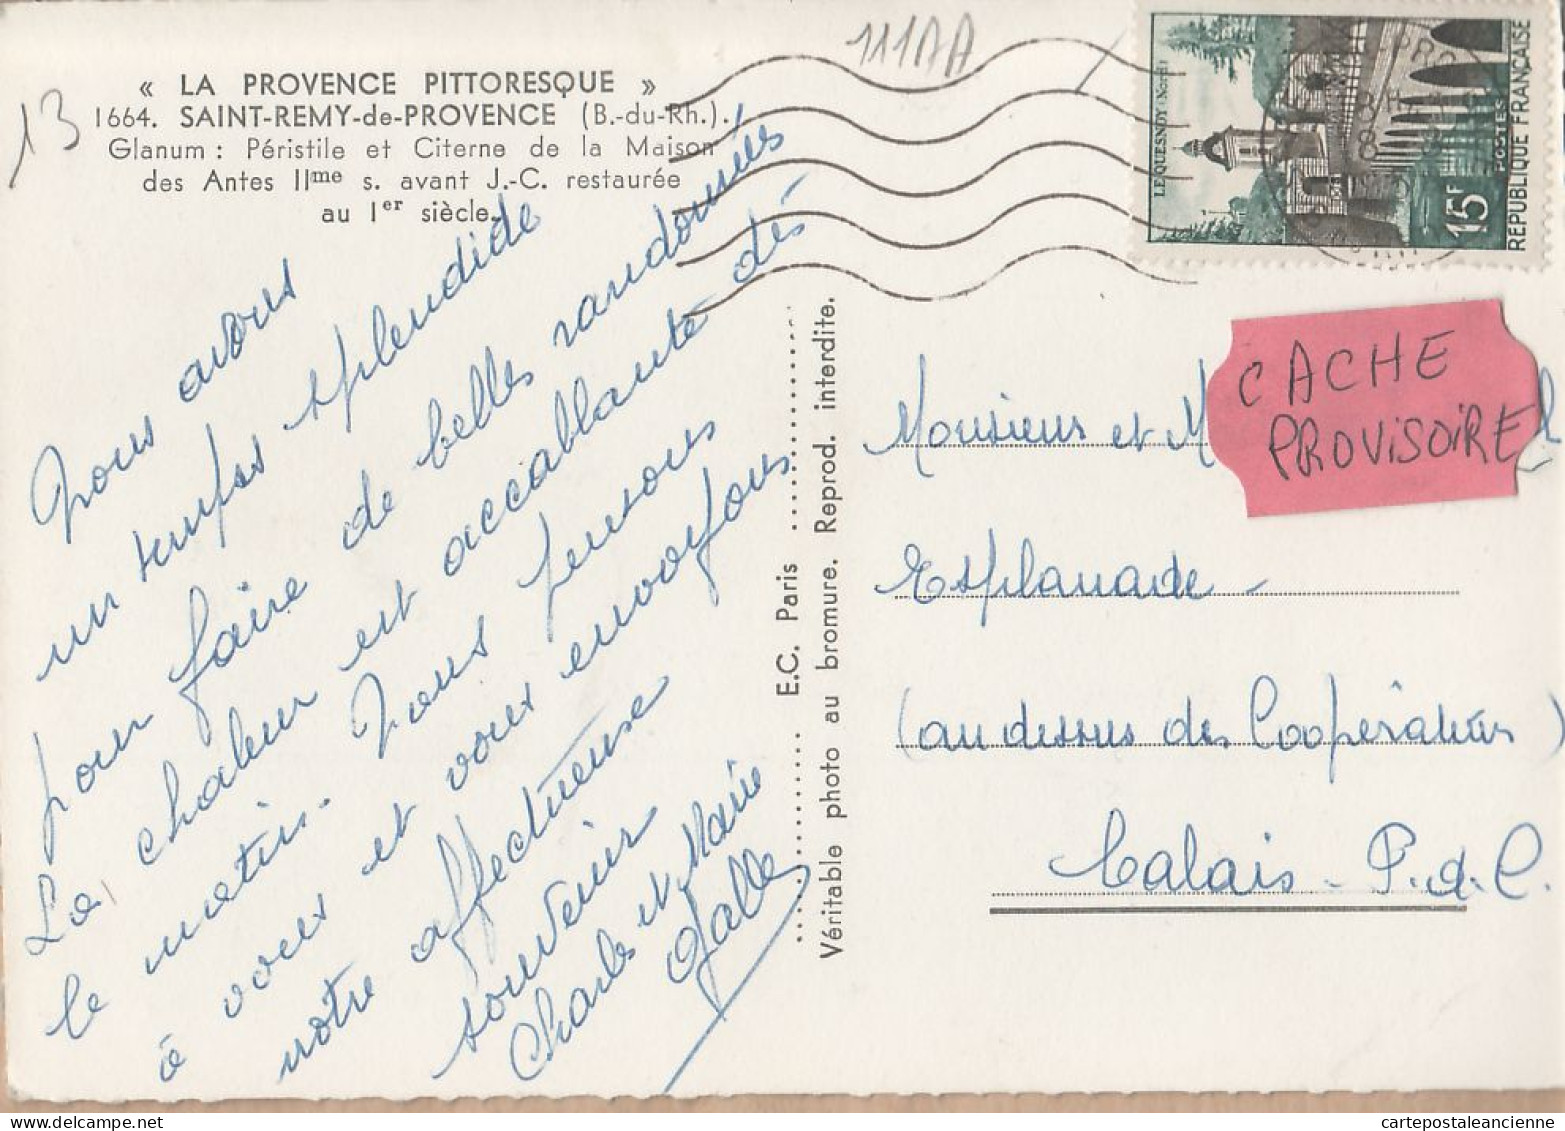 111AA
13
« LA PROVENCE PITTORESQUE »
1664. SAINT-REMY-de-PROVENCE (B.-du-Rh.).
Glanum : Péristile et Citerne de la Maison
des Antes IIme s. avant J.-C. restaurée
au Ier siècle.
Nous avons
un temps splendide
pour faire de belles randonnées
La chaleur est accablante dès
le matin. Nous pensons
à vous et vous envoyons
notre affectueuse
souvenir
Charles et Marie
E.C. Paris
Véritable photo au bromure. Reprod. interdite.
LE QUESNOY (Nord)
15F
POSTES
REPUBLIQUE FRANÇAISE
CACHE
PROVISOIRE
Monsieur et M
Esplanade -
(au dessus des Coopérateurs)
Calais - P.d.C.
cartepostaleancienne.com